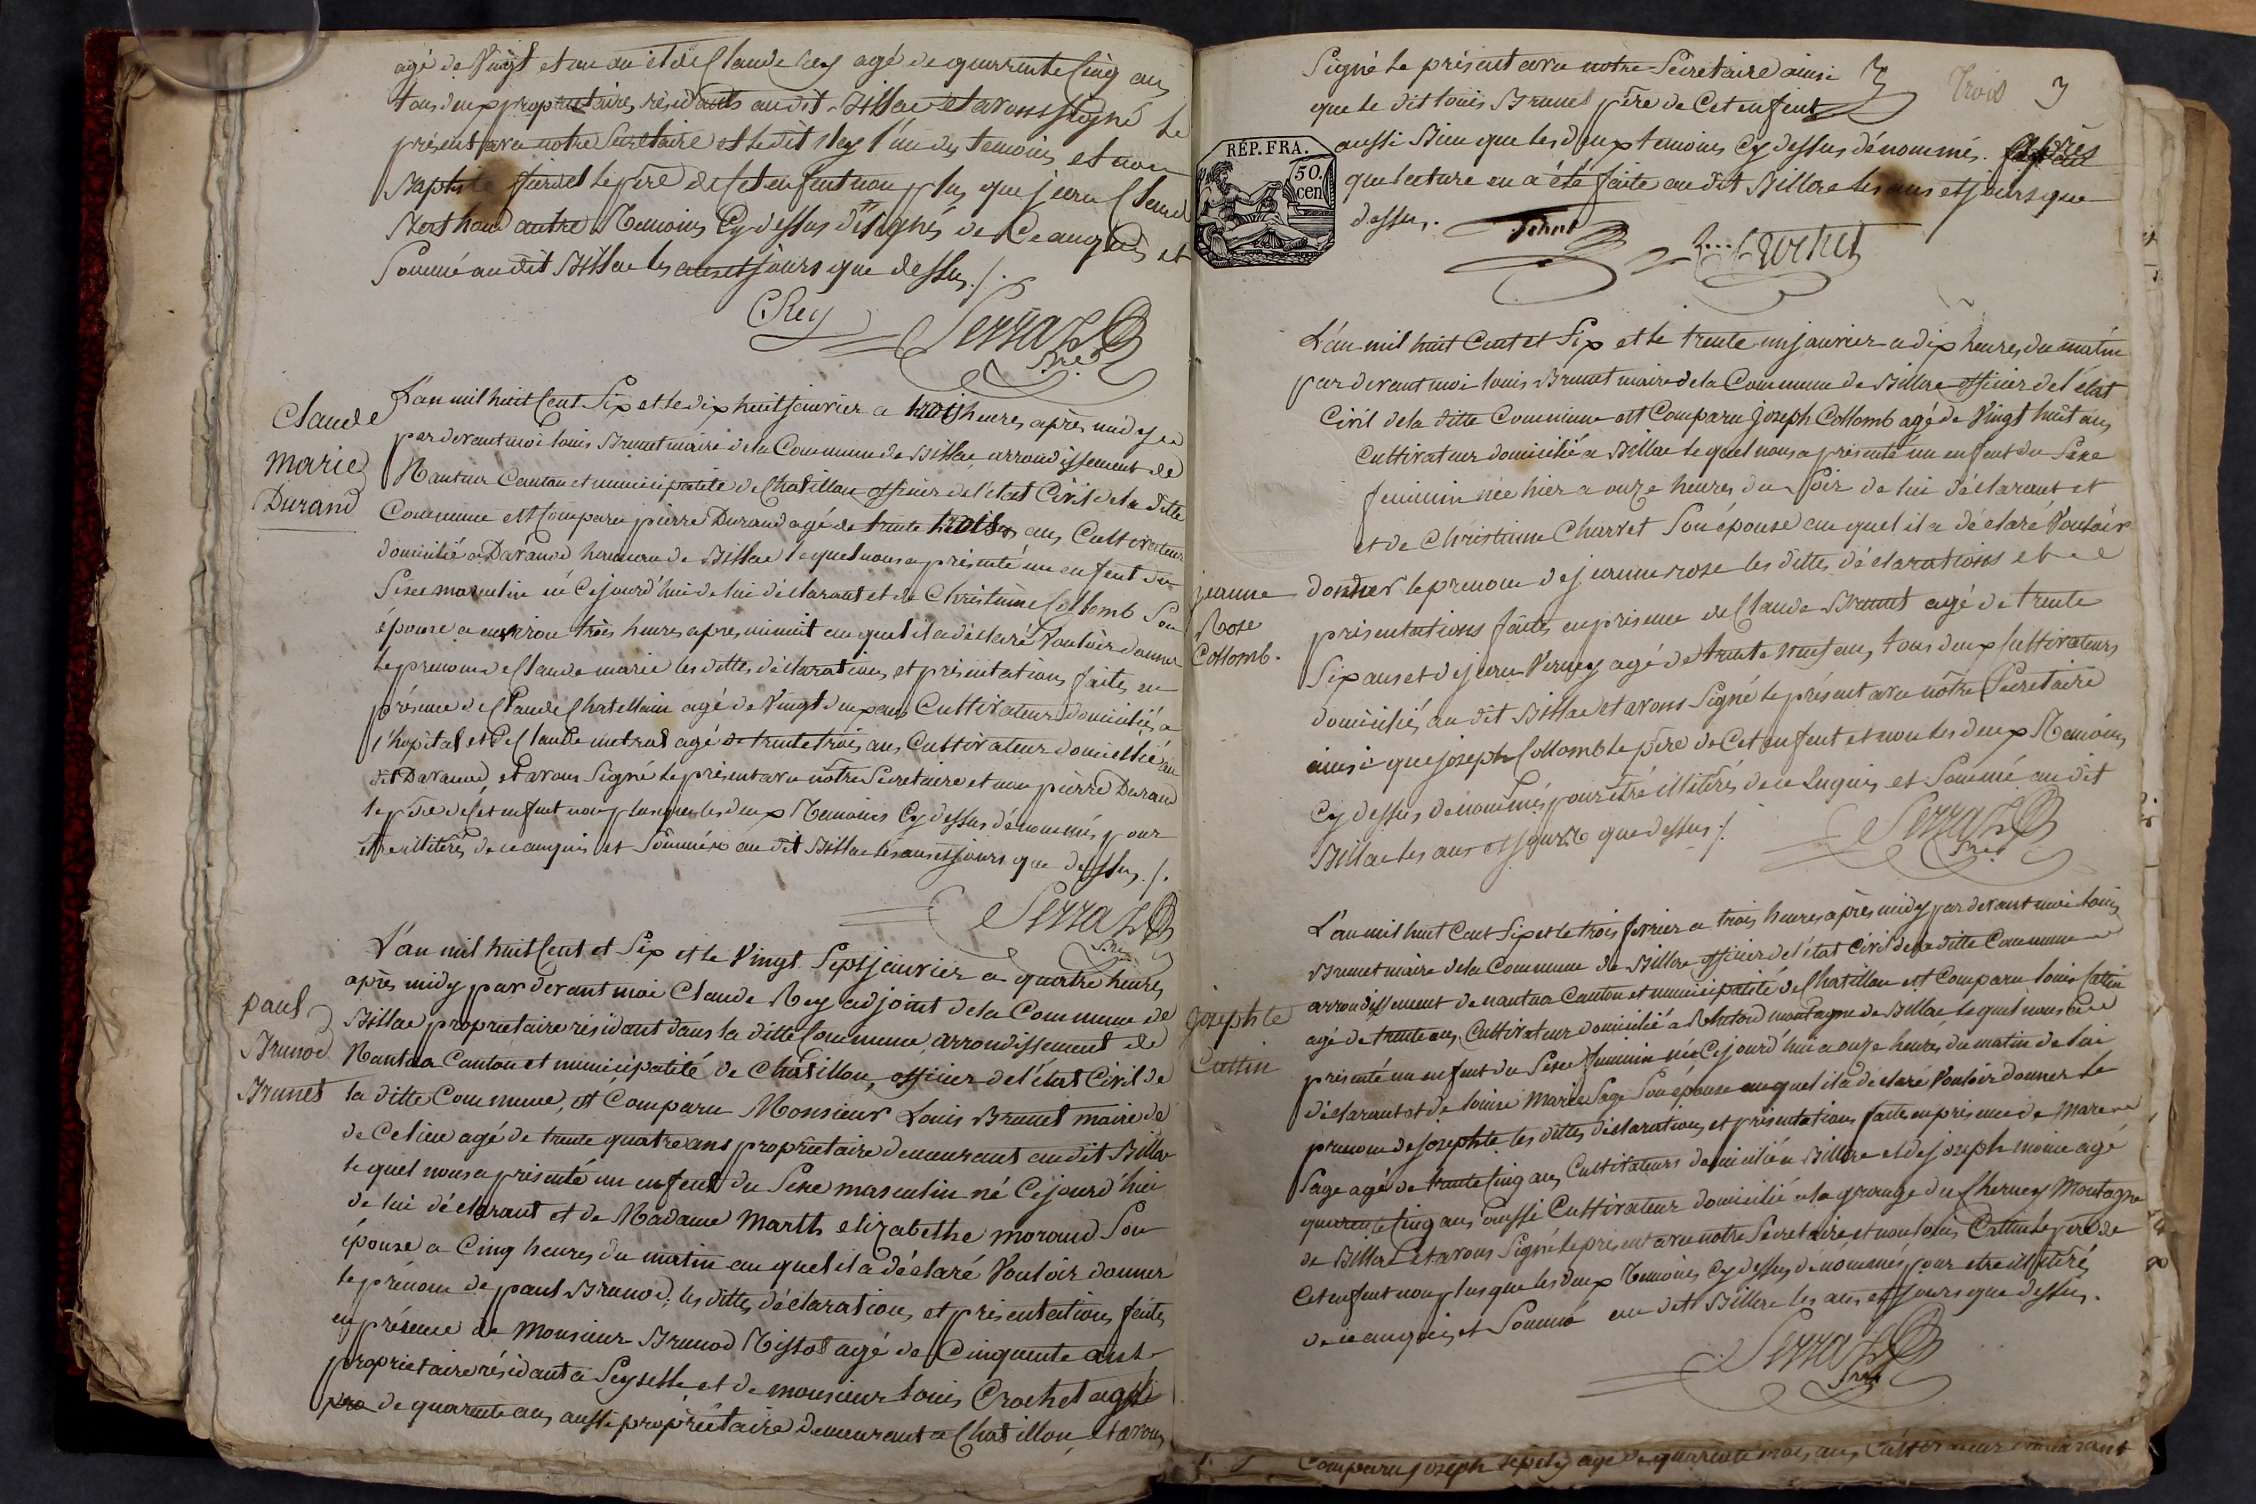 agé de Vingt et un an et de Claude Rey agé de quarrente Cinq ans
tous deux proprietaires, résidants au dit Billiac et avons Signé le
présent avec notre Secretaire et le dit Rey l'un des temoins et non
Baptiste le père de Cet enfant non plus que jean Claude
Berthoud autre Temoins Cy dessus désignés de Ce anquis et
Sommé au dit Billiac les ans et jours que dessus ./.
CRey Serraz
Sre
Claude
Marie
Durand
L'an mil huit Cent Six et le dix huit Janvier a trois heures après midy
par devant moi Louis Brunet maire de la Commune de Billiac, arrondissement de
Nantua Canton et municipalité de Chatillon officier de l'état Civil de la ditte
Commune est Comparu pierre Durand agé de trente trois ans Cultivateur
domicilié a Davanod hameau de Billiac lequel nous a présenté un enfant du
Sexe masculin né Cejourd'hui de lui déclarant et de Christinne Collomb Son
épouse a environ trois heures apres minuit au quel il a déclaré Vouloir donner
le prenom de Claude marie les dittes déclarations et présentations faites en
présence de Claude Chatellain agé de Vingt deux ans Cultivateur domicilié a
l'hopital et de Claude metral agé de trente trois ans Cultivateur domicillié au
dit Davanod et avons Signé le présent avec nôtre Secretaire et non pierre Durand
le père de Cet enfant non plus que les deux Temoins Cy dessus dénommés pour
etre illiterés de ce anquis et Sommés au dit Billiac les ans et jours que dessus ./.
Serraz
Sre
paul
Brunod
Brunet
L'an mil huit Cent et Six et le Vingt Sept janvier a quatre heures
après midy par devant moi Claude Rey adjoint de la Commune de
Billiac proprietaire résidant dans la ditte Commune, arrondissement de
Nantua Canton et municipalité de Chatillon, officier de l'état Civil de
la ditte Commune, est Comparu Monsieur Louis Brunet maire de
de Ce lieu agé de trente quatre ans proprietaire demeurant au dit Billiac
le quel nous a présenté un enfant du Sexe masculin né Cejourd'hui
de lui déclarant et de Madame Marth elizabethe morand Son
épouse a Cinq heures du matin au quel il a déclaré Vouloir donner
le prénom de paul Brunod, les dittes déclarations et présentations faites
en présence de Monsieur Brunod Mistot agé de Cinquante ans
proprietaire résidant a Seyselle et de monsieur Louis Crochet agé
de quarante ans aussi proprietaire demeurant a Chatillon, et avons
Signé le présent avec notre Secretaire ainsi
que le dit Louis Brunet père de Cet enfant
Trois 3
aussi Bien que les deux temoins Cy dessus dénommés. après
que lecture en a été faite au dit Billiac les ans et jours que
dessus.
RÉP. FRA.
50.
cen
Crochet
L'an mil huit Cent et Six et le trente un janvier a dix heures du matin
par devant moi Louis Brunet maire de la Commune de Billiac officier de l'état
Civil de la ditte Commune est Comparu joseph Collomb agé de Vingt huit ans
Cultivateur domicilié a Billiac le quel nous a présenté un enfant du Sexe
feminin née hier a onze heures du Soir de lui déclarant et
et de Christinne Charvet Son épouse au quel il a déclaré Vouloir
jeanne
Rose
Collomb.
donner le prenom de jeanne rose les dittes déclarations et
présentations faites en présence de Claude Brunet agé de trente
Six ans et de jean Verney agé de trente neuf ans, tous deux Cultivateurs
domiciliés, au dit Billiac et avons Signé le présent avec nôtre Secretaire
ainsi que joseph Collomb le père de Cet enfant et non les deux Temoins
Cy dessus dénommés pour etre illiterés de ce Enquis et Sommé au dit
Billiac les ans et jours que dessus ./.
Serraz
Sre
Josephte
Cattin
L'an mil huit Cent Six et le trois fevrier a trois heures après midy par devant moi Louis
Brunet maire de la Commune de Billiac officier de l'état Civil de la ditte Commune
arrondissement de nantua Canton et municipalité de Chatillon est Comparu Louis Catin
agé de trente ans, Cultivateur domicilié a Retord montagne de Billiac le quel nous a
présenté un enfant du Sexe feminin née Cejourd'hui a onze heures du matin de lui
déclarant et de Louise Marie Sage Son épouse au quel il a déclaré Vouloir donner le
prenom de josephte les dittes déclarations et présentations faite en présence de Marc
Sage agé de trente Cinq ans, Cultivateurs domicilié a Billiac et de joseph moine agé
quarente Cinq ans aussi Cultivateur domicilié a la grange du Cherney Montagne
de Billiac et avons Signé le présent avec notre Secretaire et non Louis Cattin le père de
Cet enfant non plus que les deux Temoins Cy dessus dénommés pour etre illiterés
de ce anquis et Sommé au dit Billiac les ans et jours que dessus.
Serraz
Sre
Comparu joseph agé de quarente trois ans, Cultivateur demeurant